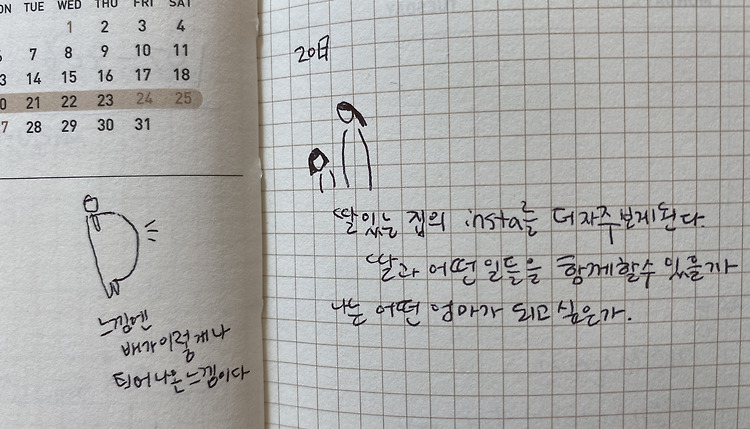 ON TUE WED THU FRI SAT
1 2 3 4
6 7 8 9 10 11
3 14 15 16 17 18
0 21 22 23 24 25
7 28 29 30 31
느낌엔
배가이렇게나
튀어나온느낌이다
20日
딸있는 집의 insta를 더자주보게된다.
딸과 어떤일들을 함께할수 있을까
나는 어떤 엄마가 되고싶은가.